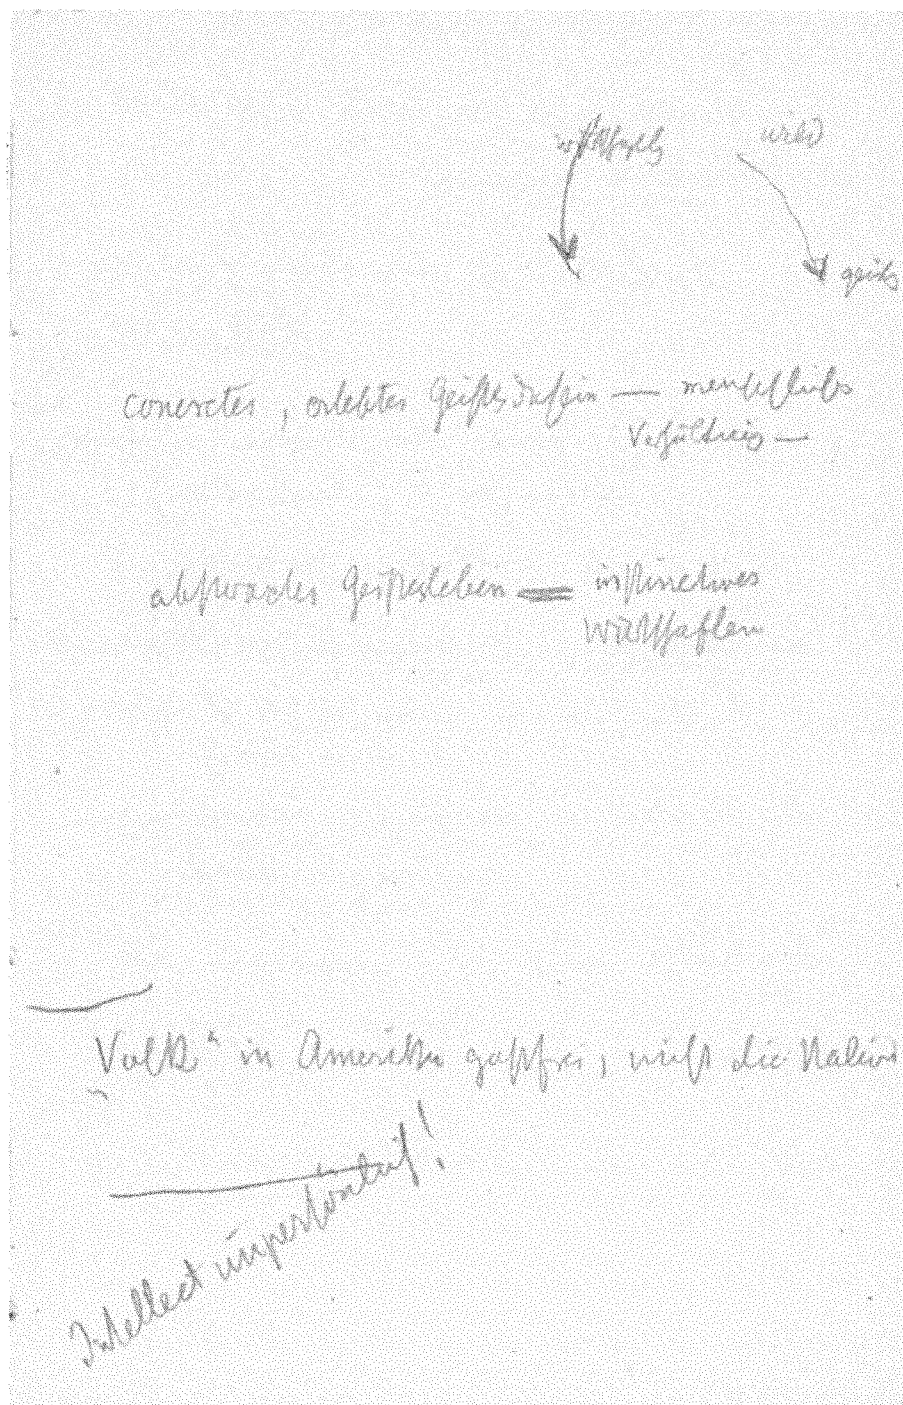 wirthschaftl wird
geistg
concretes, erlebtes Geistesdasein — menschliches
Verhältnis —
abstractes Geistesleben = instinctives
Wirthschaften
„Volk“ in Amerika gastfrei, nicht die Nation
Intellect unpersönlich!